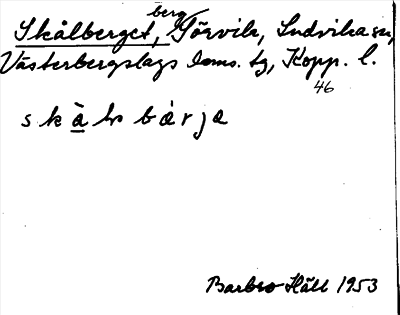 Skålberget, berg, Görvik, Ludvika sn,
Västerbergslags doms. tg, Kopp. l.
46
skå̀lsbærjə
Barbro Häll 1953